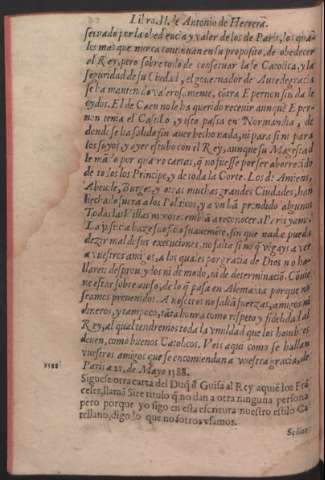 Libro. II. de Antonio de Herrera.
seruado por la obediencia y valer de los de Paris, los quales
los mas que nunca continuan en su proposito, de obedecer
al Rey, pero sobre todo de conseruar la fe Catolica, y la
seguridad de su Ciudad, el gouernador de
se ha mantenido valerosamente, Epernon sin da
oydos. El de Caen no le ha querido receuir aunque Eper-
non tenia el Castillo, y
donde se ha salido sin auer hecho nada, ni para si ni para
los suyos, y ayer estubo con el Rey, aunque su Magestad
le por que no fuesse por ser aborrecido
de todos los Principes, y de toda la Corte. Los de Amiens,
Abeuile, Burges y otras muchas grandes Ciudades, han
hechado fuera a los Politicos, y a vn han prendido algunos
Todas las Villas nos a reconocer a Paris y
La justicia haze su oficio suauemente, sin que nadie pueda
dezir mal de sus execuciones, no falta si no que vengays a ver
a vuestros amigos, a los quales por gracia de Dios no ha-
llareis desproueydos ni de modo, ni de determinacion. Conuie-
ne estar sobre auiso, de lo que passa en Alemania porque no
seamos preuenidos. A nosotros no faltan fuerzas, amigos ni
dineros, y tampoco, tanta honra como respeto y fidelidad al
Rey, al qual tendremos toda la vmildad que los hombres
deuen, como buenos Catolicos. Veis aqui como se hallan
vuestros amigos que se encomiendan a vuestra gracia, de
1588 Paris a 21. de Mayo 1588.
Siguese otra carta del Duque de Guisa al Rey aquien los Fran
ceses, llaman Sire titulo que no dan a otra ninguna persona
pero porque yo sigo en esta escritura nuestro estilo Ca-
stellano, digo lo que nosotros vsamos.
Señor